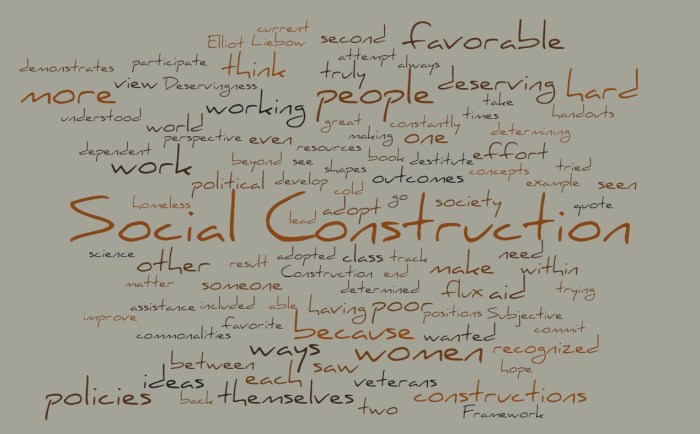 current
Elliot Liebow second favorable
demonstrates participate think attempt always
truly
more view Deservingness people deserving hard
working take
understood world great constantly times handouts
perspective even making one determining
dependent resources
work beyond see shapes book destitute effort tried
political develop cold outcomes concepts example seen
homeless lead adopt go society quote
Social Construction
science other result adopted class track need
Construction end make within
matter someone determined flux aid trying
assistance included able having poor positions Subjective
improve favorite because wanted commit
commonalities ways women recognized
between saw hope
ideas each veterans
policies back themselves two constructions
Framework